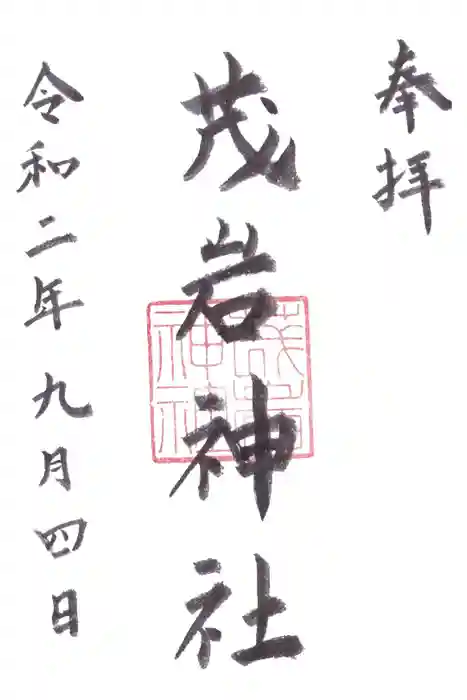 奉拝
茂岩神社
茂岩
神社
令和二年九月四日